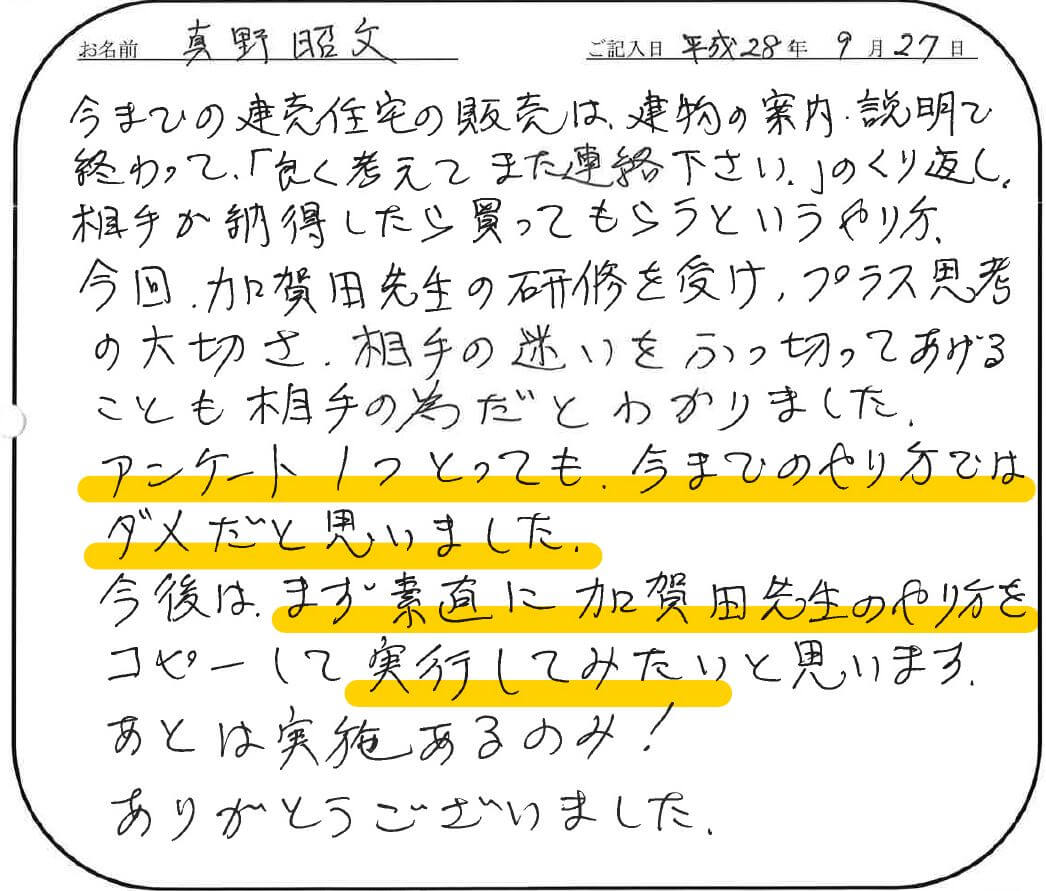 お名前 真野昭文 ご記入日 平成28年 9月27日
今までの建売住宅の販売は、建物の案内・説明で
終わって、「良く考えてまた連絡下さい。」のくり返し。
相手が納得したら買ってもらうというやり方。
今回、加賀田先生の研修を受け、プラス思考
の大切さ、相手の迷いをふっ切ってあげる
ことも相手の為だとわかりました。
アンケート1つとっても、今までのやり方では
ダメだと思いました。
今後は、まず素直に加賀田先生のやり方を
コピーして実行してみたいと思います。
あとは実施あるのみ！
ありがとうございました。